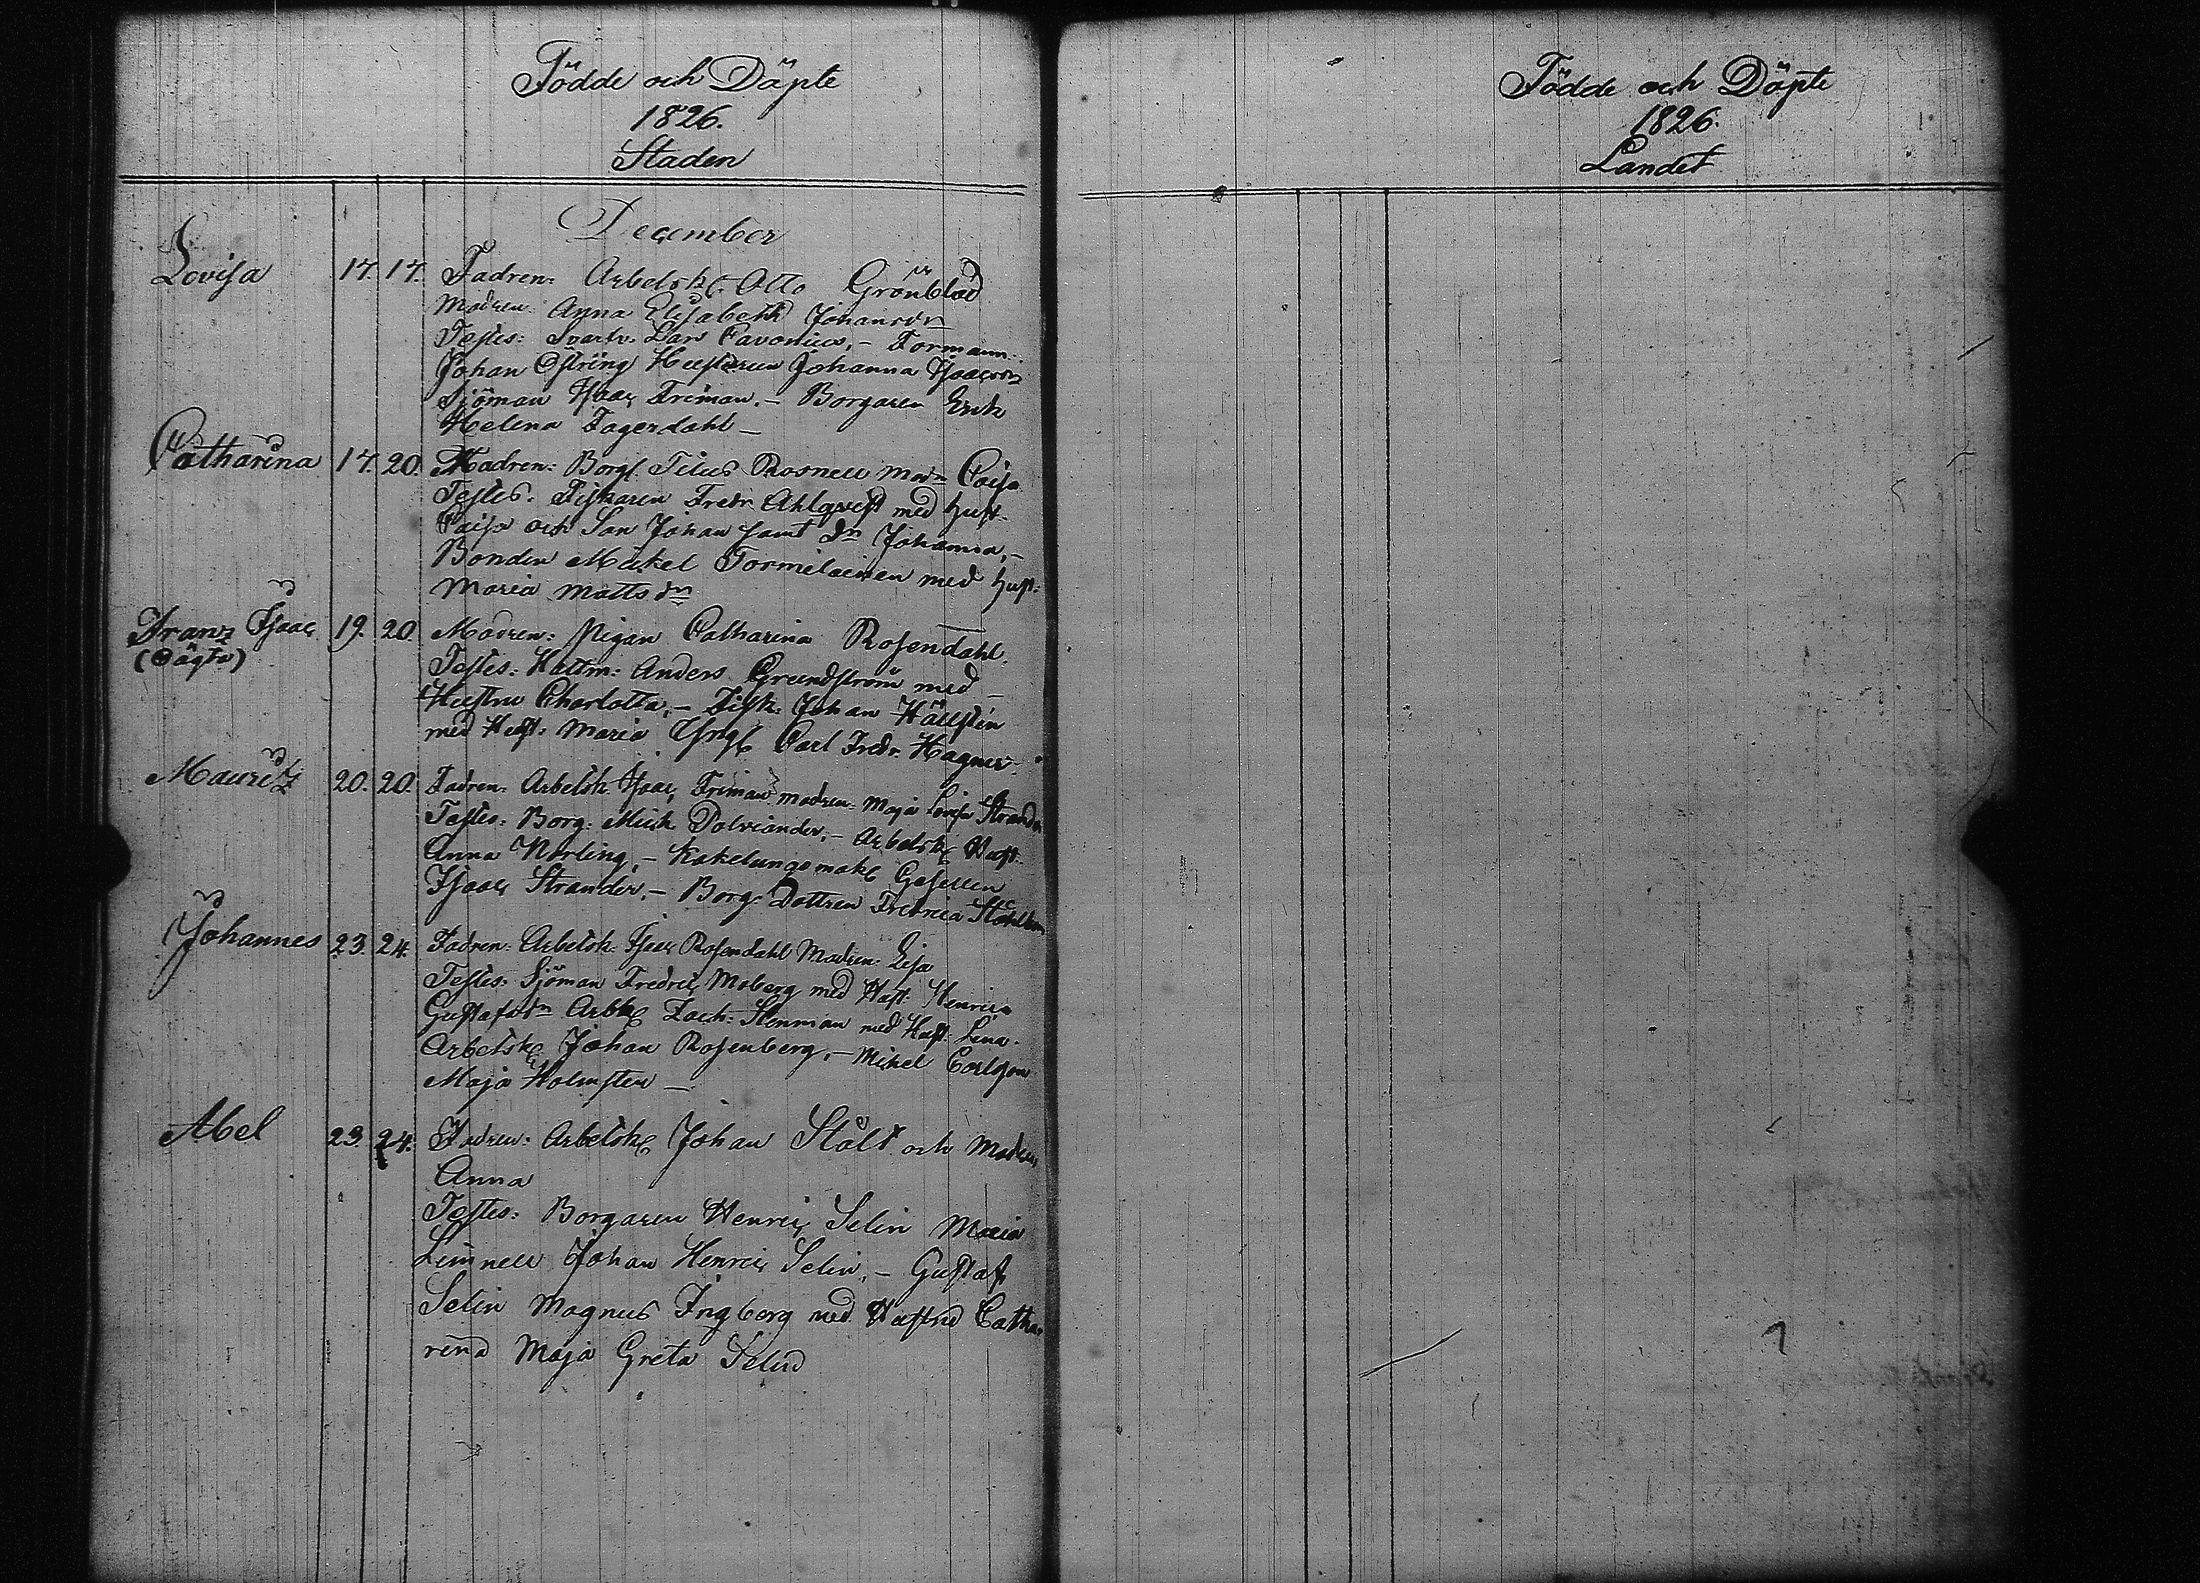 Födde och Döpte
1826.
Staden
December
Lovisa 17. 17. Fadren: Arbetsk. Otto Grönblad
Modren: Anna Elisabeth Johansdn
Testes: Svarfv. Lars Pavonius, – Formann
Johan Öfström Hustrun Johanna Isaacsdn
Sjöman Isaac Friman. – Borgaren Erik
Helena Fagerdahl –
Catharina 17. 20. Fadren: Borg. Titus Rosnell Modn Caisa
Testes: Fiskaren Fredr. Ahlqvist med hust.
Caisa och Son Johan samt Dn Johanna, –
Bonden Mickel Tormelainen med hust:
Maria Mattsdn
Franz Isaac 19. 20. Modren: Pigan Catharina Rosendahl.
(Oägta)
Testes: Hattm: Anders Grundström med
Hustru Charlotta, – Fisk: Johan Hällsten
med Hust: Maria Carl Fredr. Hagner.
Mauritz 20. 20. Fadren: Arbetsk. Isaac Friman modren: Maja Lovisa Strand
Testes: Borg: Mich Polviander, – Arbetsk. Hust.
Anna Norling, – Kakelungsmak. Gesellen
Isaac Strander. – Borg: Dottren Fredrica
Johannes 23. 24. Fadren: Arbetsk. Isaac Rosendahl Modren: Lisa
Testes: Sjöman Fredric Moberg med Hust: Henrica
Gustafsdn Arbk. Zach: Stenman med Hust: Lena.
Arbetsk. Johan Rosenberg, – Mickel Carlsson
Maja Holmsten –
Abel 23. 24. Fadren: Arbetsk. Johan Stålt och Modren
Anna
Testes: Borgaren Henric Selin Maria
Limnell Johan Henric Selin, – Gustaf
Selin Magnus Ingberg med Hustru Catha-
rina Maja Greta Selin
Födde och Döpte
1826.
Landet